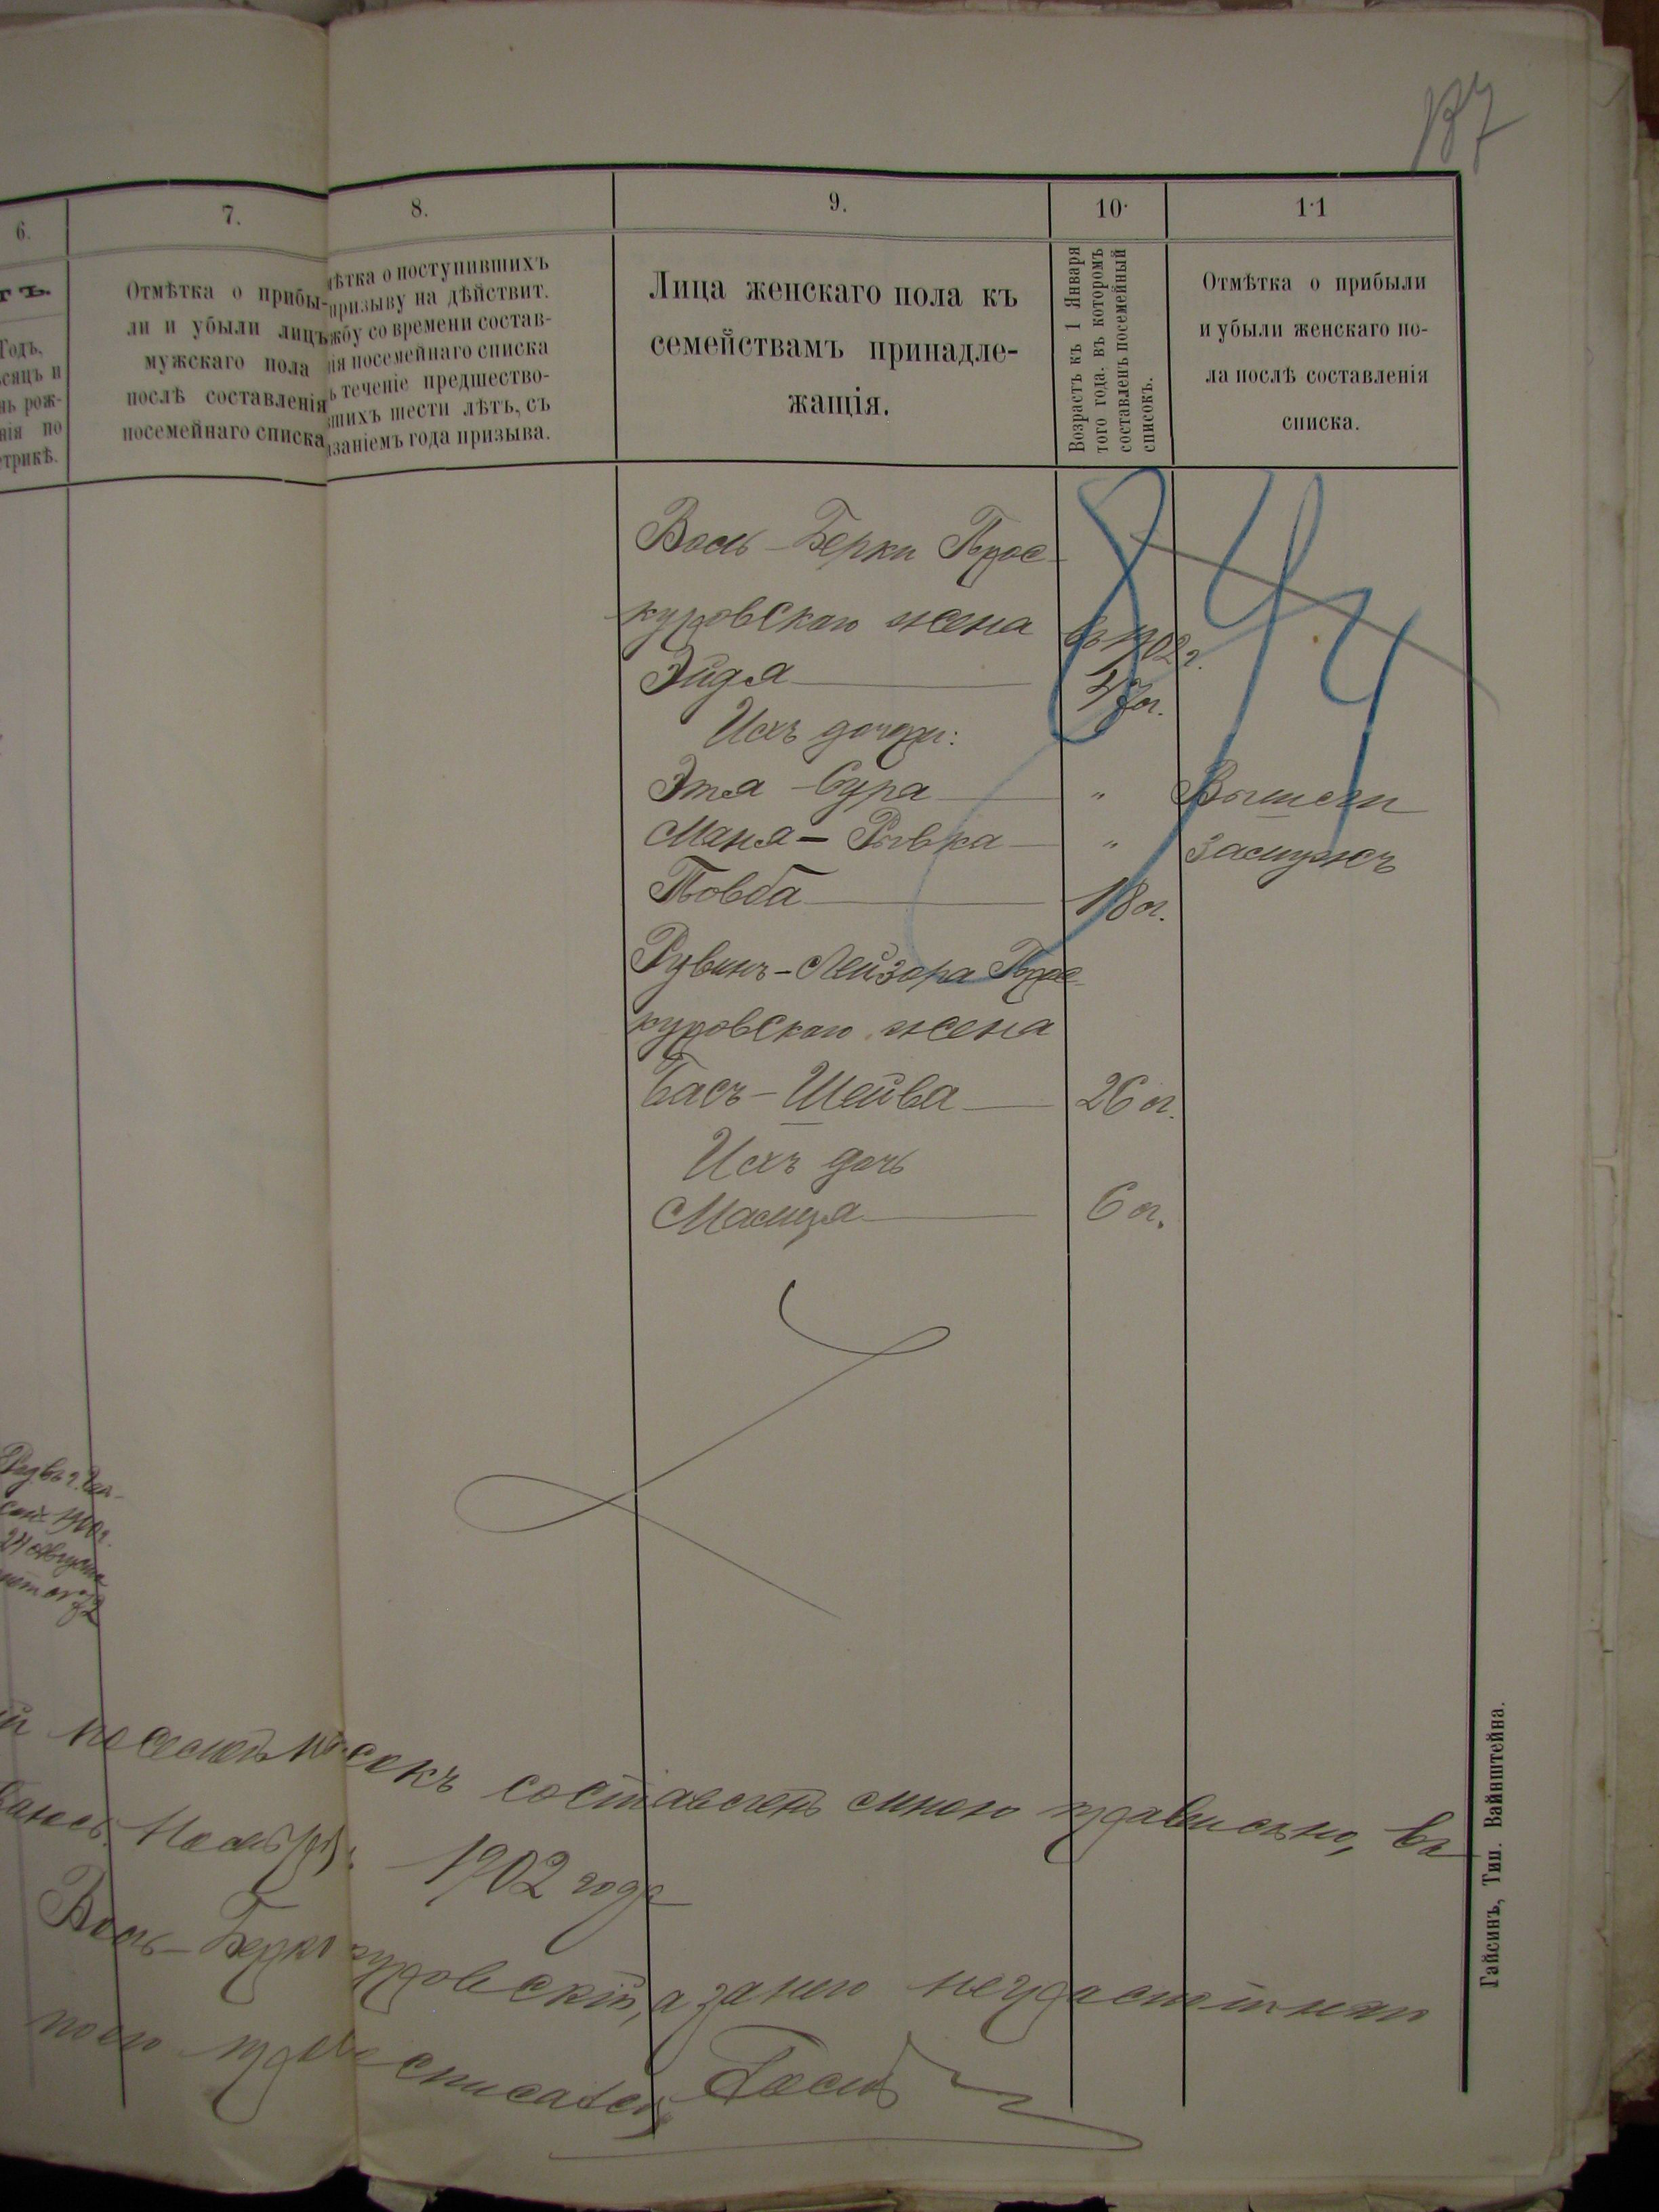 187
6.
7.
8.
9.
10.
11
Годъ,
Отмѣтка о прибы-
ли и убыли лицъ
мужскаго пола
послѣ составленія
посемейнаго списка
ѣтка о поступившихъ
призыву на дѣйствит.
жбу со времени состав-
ія посемейнаго списка
ъ теченіе предшество-
шихъ шести лѣтъ, съ
азаніемъ года призыва.
Лица женскаго пола къ
семействамъ принадле-
жащія.
Возрастъ къ 1 Января
того года, въ которомъ
составленъ посемейный
списокъ.
Отмѣтка о прибыли
и убыли женскаго по-
ла послѣ составленія
списка.
84
Воль-Берки Прос-
куровскаго жена въ 1902 г.
Эйдя 47 л.
Ихъ дочери:
Этя-Сура " Вышли
Маня-Рывка " замужъ
Товба 18 л.
Рувинъ-Лейзора Прос-
куровскаго жена
Бася-Шейва 26 л.
Ихъ дочь
Масця 6 л.
24 августа
составленъ мною правильно, въ
1902 года
Воль-Берко куровскій, а за него неграмотнаго
Гайсинъ, Тип. Вайнштейна.